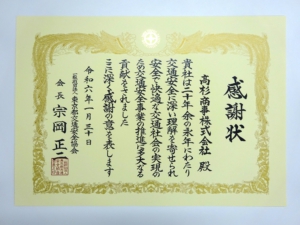 感謝状
高杉商事株式会社 殿
貴社は二十年余の永年にわたり
交通安全に深い理解を寄せられ
安全で快適な交通社会の実現の
ための交通安全事業の推進に多大なる
貢献をされました
ここに深く感謝の意を表します
令和六年一月三十日
一般財団法人 東京都交通安全協会
会長 宗岡 正二